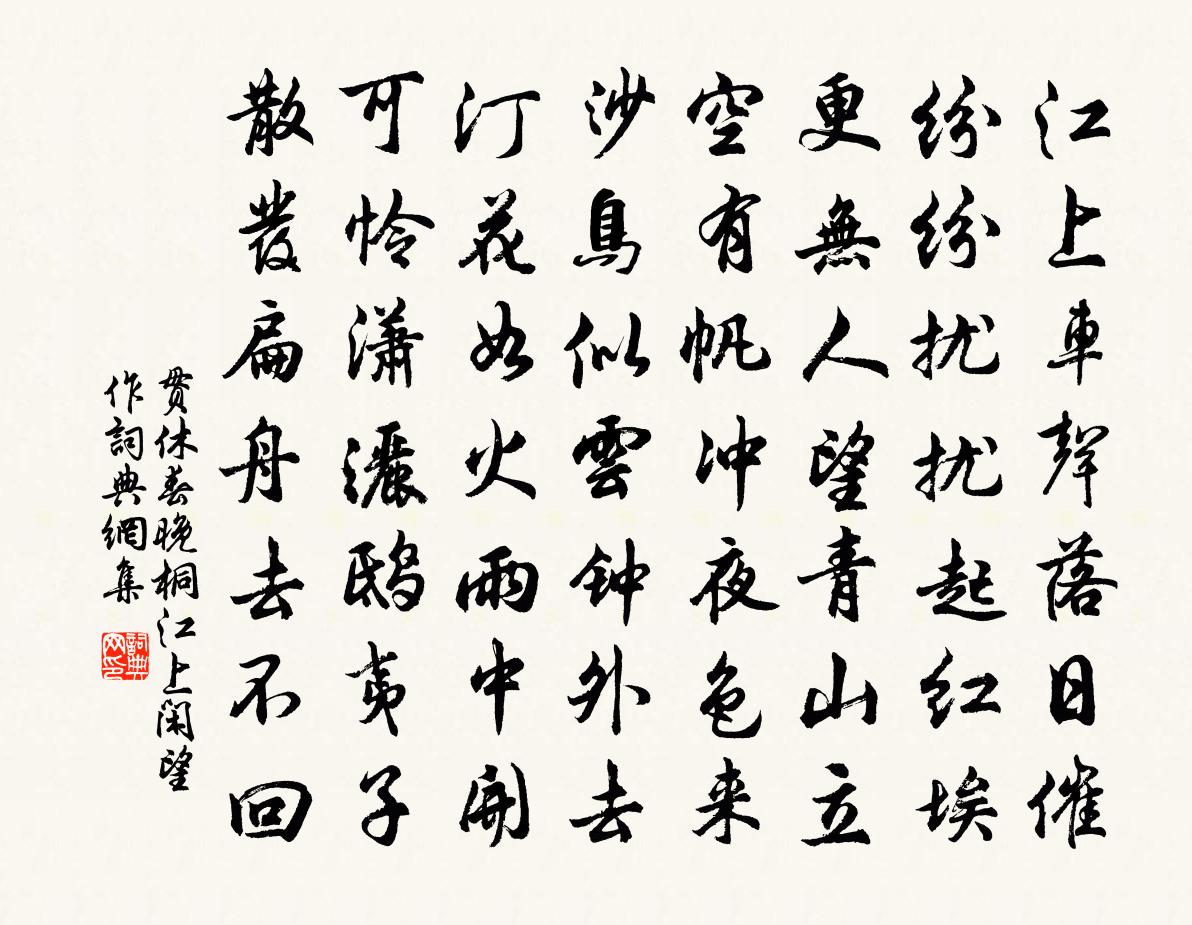 江上車聲落日催
紛紛扰扰起红埃
更無人望青山立
空有帆冲夜色来
沙鳥似雲钟外去
汀花如火雨中開
可怜潇灑鸱夷子
散發扁舟去不回
贯休春晚桐江上闲望
作詞典網集
詞典网印